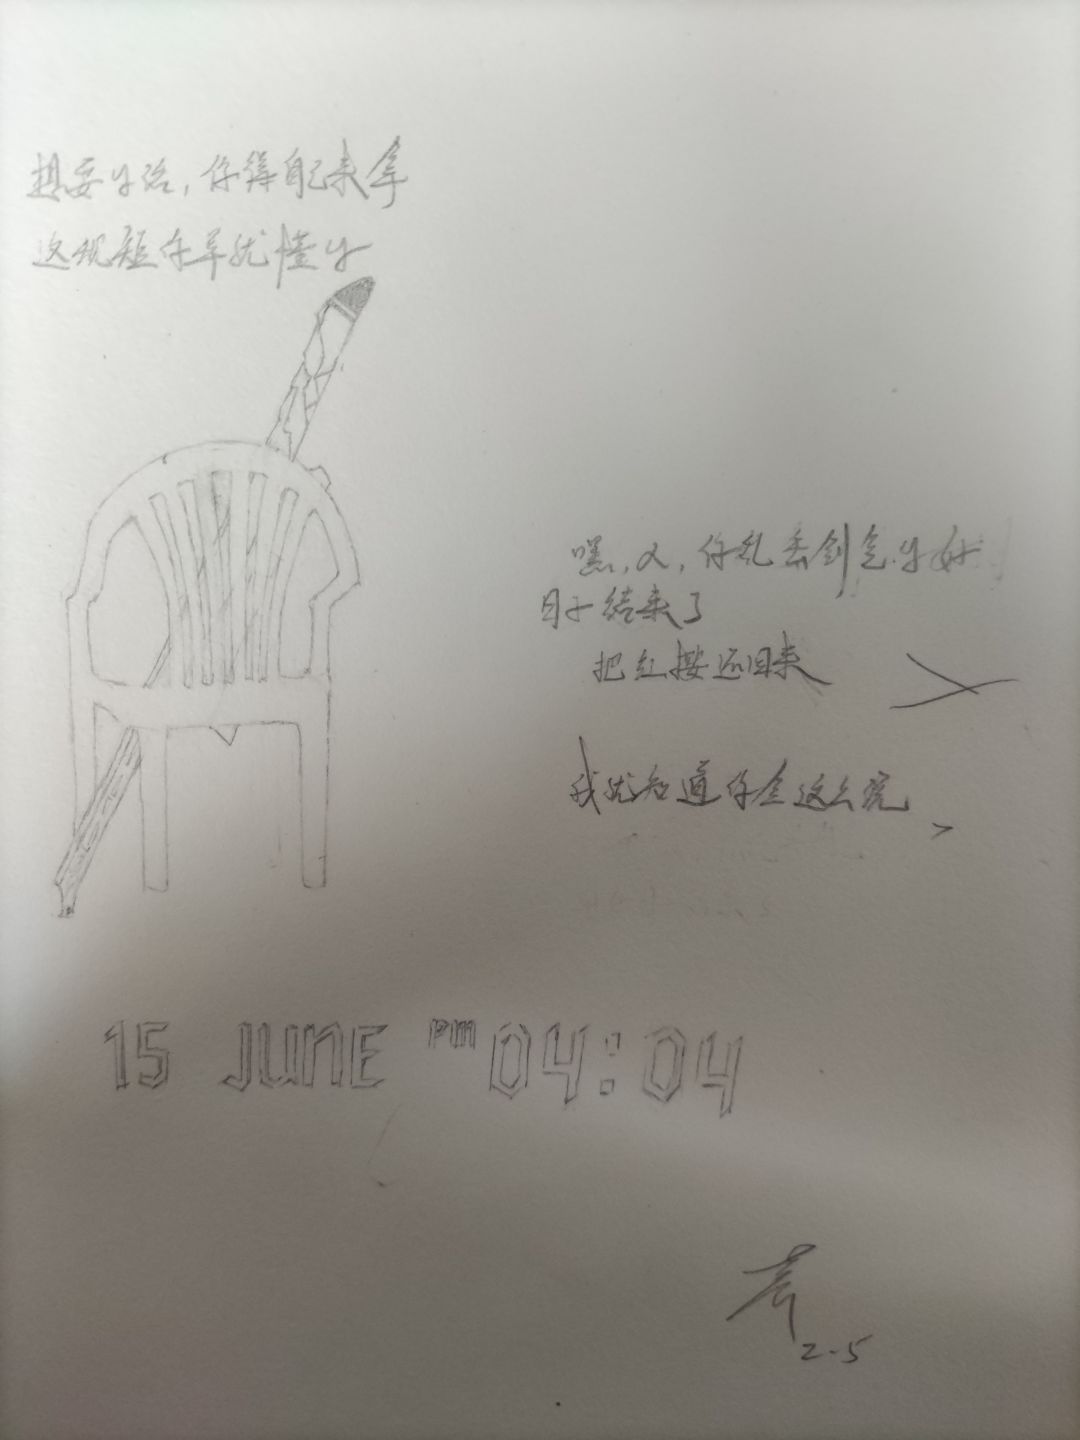 想要的话，你得自己来拿
这规矩你早就懂的
嘿，人，你乱丢剑气的好
日子结束了
把红按还回来
我就知道你会这么说
15 JUNE PM 04:04
2-5